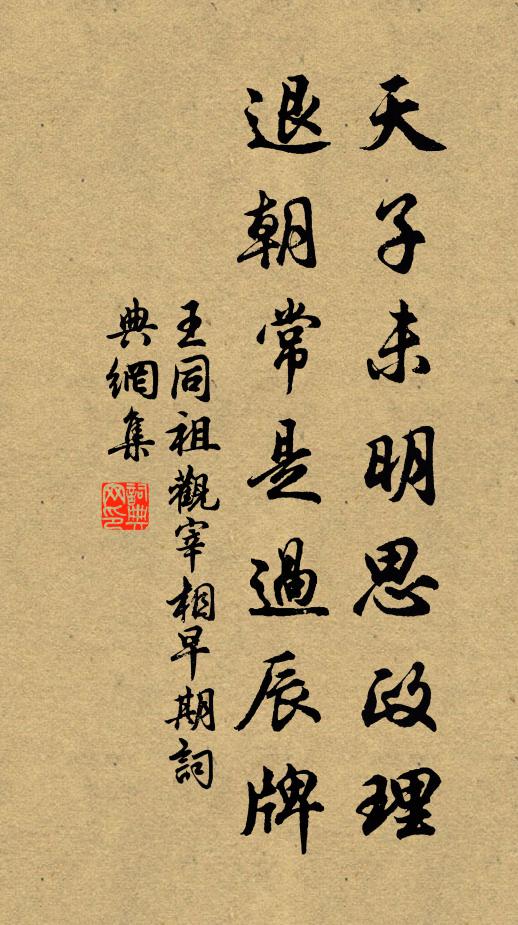 天子未明思政理
退朝常是過辰牌
王同祖觀宰相早期詞
典網集
詞典
网印